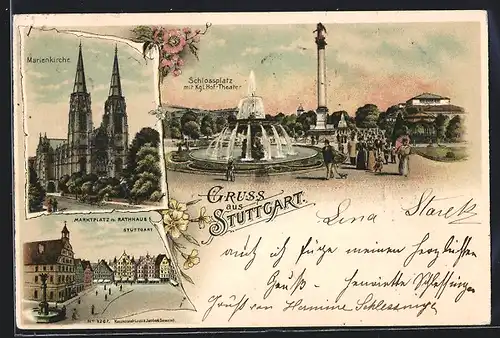 Marienkirche
Schlossplatz
mit Kgl. Hof-Theater
GRUSS
aus
STUTTGART.
MARKTPLATZ M. RATHHAUS
STUTTGART
Lina Starek
auch ich füge meinen herzlichsten
Gruß. — Henriette Schlessinger
Gruß von Hermine Schlessinger